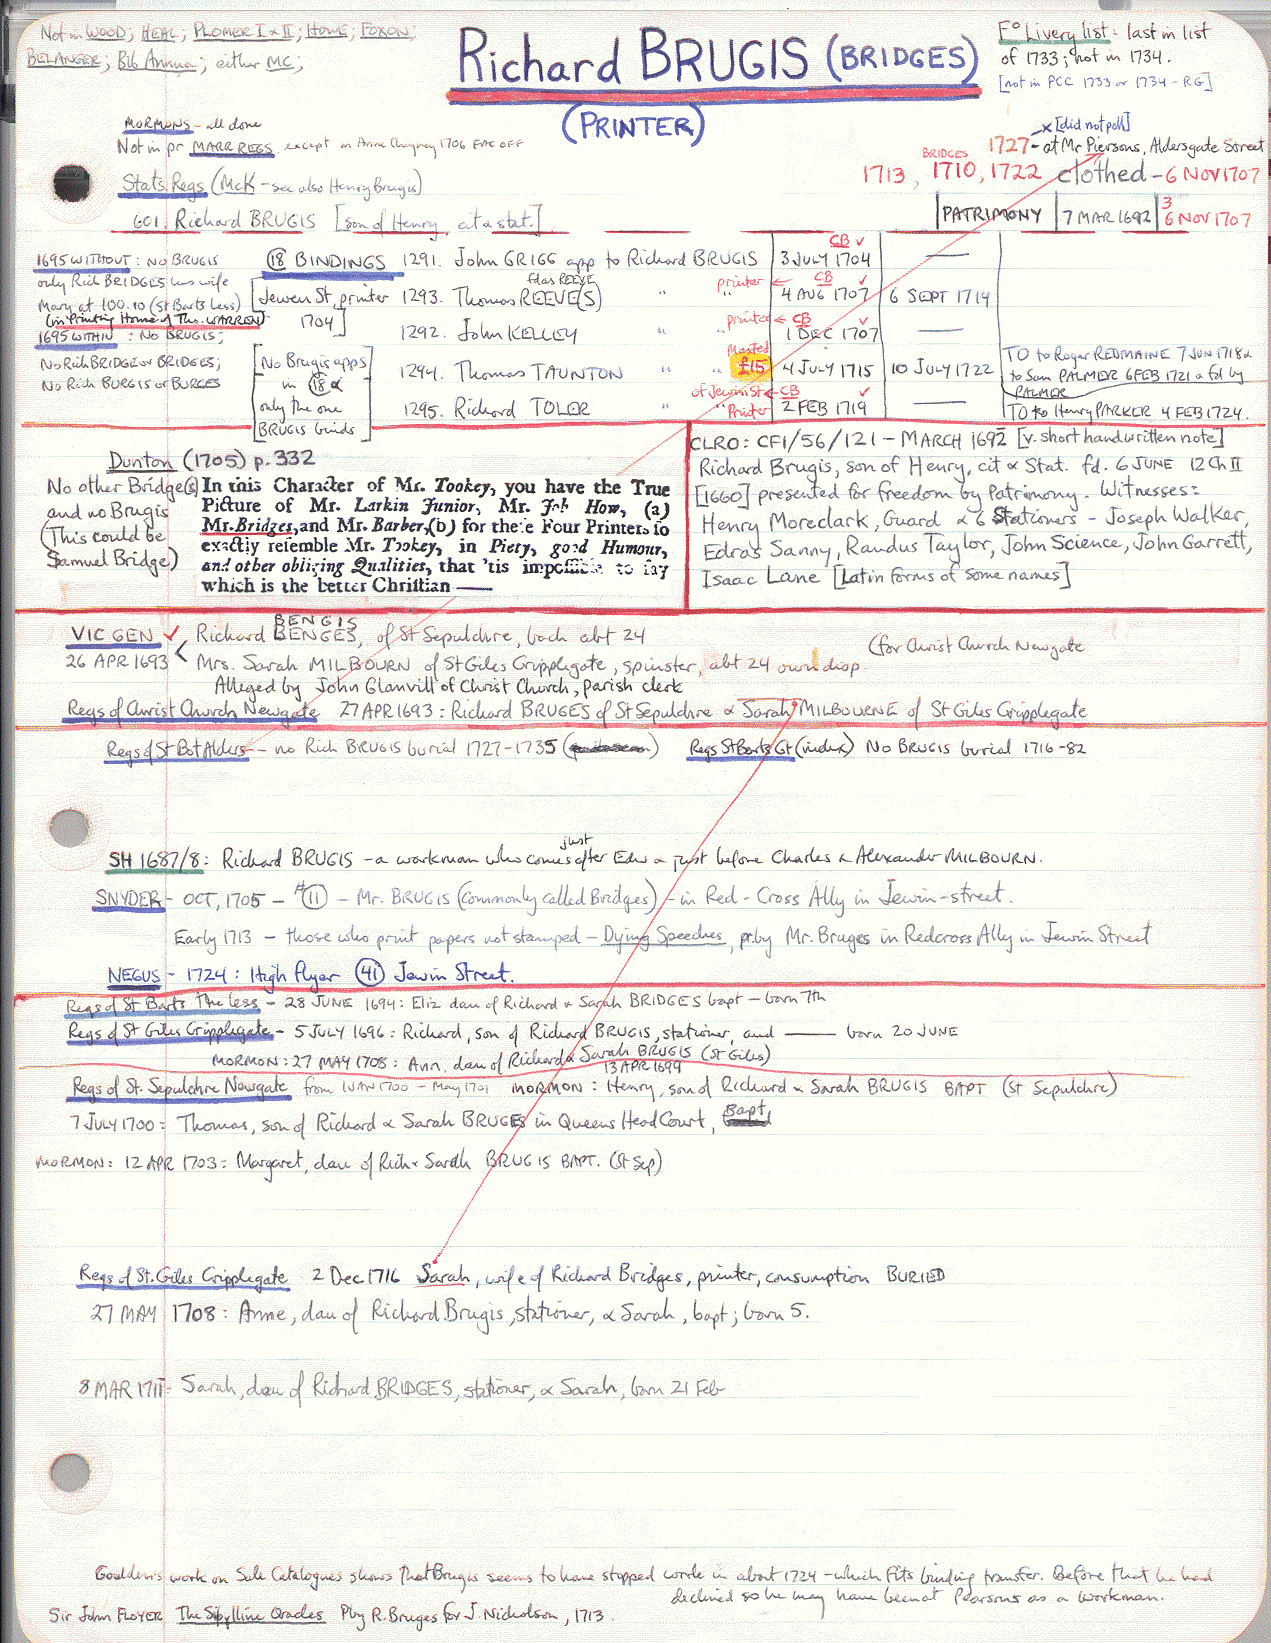 Not in WOOD; HEAL; PLOMER I & II; HOWE; FOXON;
BELANGER; Bib Annua; either MC;
Richard BRUGIS (BRIDGES)
(PRINTER)
F° Livery list: last in list
of 1733; not in 1734.
[not in PCC 1733 or 1734 - RG]
MORMONS - all done
Not in pr MARR REGS, except m Anne 1706 FAC OFF
x [did not poll]
1727 - at Mr Piersons, Aldersgate Street
BRIDGES
1713, 1710, 1722 clothed - 6 NOV 1707
Stats Regs (McK - see also Henry Brugis)
601. Richard BRUGIS [son of Henry, cit & stat.]
PATRIMONY 7 MAR 1692 3
6 NOV 1707
1695 WITHOUT: NO BRUGIS
only Rich BRIDGES has wife
Mary at 100.10 (St Barts Less)
(in Printing House of Tho. WARREN)
1695 WITHIN: NO BRUGIS;
No Rich BRIDGE or BRIDGES;
No Rich BURGIS or BURGES
(18) BINDINGS
[Jewen St, printer
1704]
[No Brugis apps
in (18) &
only the one
BRUGIS binds]
CB ✓
1291. John GRIGG app to Richard BRUGIS 3 JULY 1704 —
fd as REEVE printer ← CB ✓
1293. Thomas REEVE(S) " " 4 AUG 1707 6 SEPT 1714
printer ← CB ✓
1292. John KELLEY " " 1 DEC 1707 —
Masted
1294. Thomas TAUNTON " " £15 4 JULY 1715 10 JULY 1722
TO to Roger REDMAINE 7 JUN 1718 &
to Sam PALMER 6 FEB 1721 & fd by
PALMER
of Jewin St ← CB ✓
1295. Richard TOLER " " Printer 2 FEB 1719 —
TO to Henry PARKER 4 FEB 1724.
Dunton (1705) p. 332
No other Bridge(s)
and no Brugis
(This could be
Samuel Bridge)
In this Character of Mr. Tookey, you have the True
Picture of Mr. Larkin Junior, Mr. Joh How, (a)
Mr. Bridges, and Mr. Barber, (b) for these Four Printers so
exactly resemble Mr. Tookey, in Piety, good Humour,
and other obliging Qualities, that 'tis impossible to say
which is the better Christian —
CLRO: CF1/56/121 - MARCH 1692 [v. short handwritten note]
Richard Brugis, son of Henry, cit & Stat. fd. 6 JUNE 12 Ch II
[1660] presented for freedom by Patrimony. Witnesses:
Henry Moreclark, Guard & 6 Stationers - Joseph Walker,
Edras Sanny, Randus Taylor, John Science, John Garrett,
Isaac Lane [Latin forms of some names]
VIC GEN ✓
26 APR 1693
BENGIS
Richard BENGES, of St Sepulchre, bach abt 24
Mrs. Sarah MILBOURN of St Giles Cripplegate, spinster, abt 24 own disp.
(for Christ Church Newgate
Alleged by John Glanvill of Christ Church, parish clerk
Regs of Christ Church Newgate 27 APR 1693: Richard BRUGES of St Sepulchre & Sarah MILBOURNE of St Giles Cripplegate
Regs of St Bot Alders - no Rich BRUGIS burial 1727-1735 Regs St Barts Gt (index) NO BRUGIS burial 1716-82
just
SH 1687/8: Richard BRUGIS - a workman who comes after Edw & just before Charles & Alexander MILBOURN.
SNYDER - OCT, 1705 - # (11) - Mr. BRUGIS (Commonly called Bridges) - in Red-Cross Ally in Jewin-street.
Early 1713 - those who print papers not stamped - Dying Speeches, pr. by Mr. Bruges in Redcross Ally in Jewin Street
NEGUS - 1724: High flyer (41) Jewin Street.
Regs of St Barts The Less - 28 JUNE 1694: Eliz dau of Richard & Sarah BRIDGES bapt - born 7th
Regs of St Giles Cripplegate - 5 JULY 1696: Richard, son of Richard BRUGIS, stationer, and —— born 20 JUNE
MORMON: 27 MAY 1708: Ann, dau of Richard & Sarah BRUGIS (St Giles)
13 APR 1699
Regs of St. Sepulchre Newgate from 1 JAN 1700 - May 1701 MORMON: Henry, son of Richard & Sarah BRUGIS BAPT (St Sepulchre)
7 JULY 1700: Thomas, son of Richard & Sarah BRUGES in Queens Head Court, Bapt
MORMON: 12 APR 1703: Margaret, dau of Rich & Sarah BRUGIS BAPT. (St Sep)
Regs of St. Giles Cripplegate 2 Dec 1716 Sarah, wife of Richard Bridges, printer, consumption BURIED
27 MAY 1708: Anne, dau of Richard Brugis, stationer, & Sarah, bapt; born 5.
8 MAR 1711: Sarah, dau of Richard BRIDGES, stationer, & Sarah, born 21 Feb
Goulden's work on Sale Catalogues shows that Brugis seems to have stopped work in about 1724 - which fits binding transfer. Before that he had
declined so he may have been at Pearsons as a workman.
Sir John FLOYER The Sibylline Oracles P by R. Bruges for J. Nicholson, 1713.